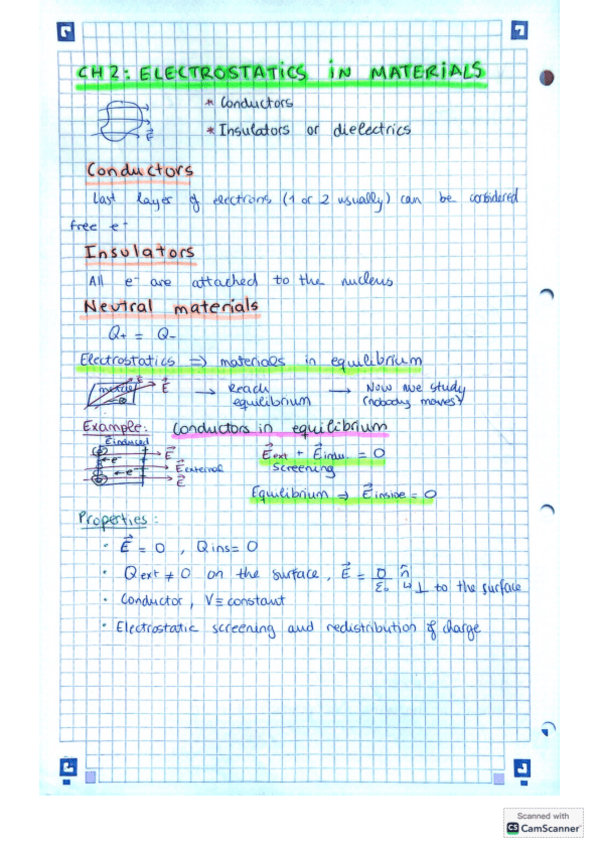 CH 2: ELECTROSTATICS IN MATERIALS
* Conductors
* Insulators or dielectrics
E
Conductors
Last layer of electrons (1 or 2 usually) can be considered
free e-
Insulators
All e- are attached to the nucleus
Neutral materials
Q+ = Q-
Electrostatics => materials in equilibrium
metal E → Reach equilibrium → Now we study (nobody moves)
Example: Conductors in equilibrium
E induced
E
e-
E external
e-
E
E ext + E indu. = 0
Screening
Equilibrium => E inside = 0
Properties:
• E = 0 , Q ins = 0
• Q ext ≠ 0 on the surface, E = σ/ε0 n̂ ↳ ⊥ to the surface
• Conductor, V ≡ constant
• Electrostatic screening and redistribution of charge
Scanned with
CS CamScanner